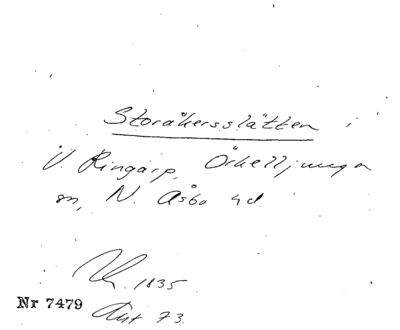 Storåkersslätten i
V. Ringarp, Örkelljunga
sn, N. Åsbo hd.
1835
Nr 7479
Akt 73.